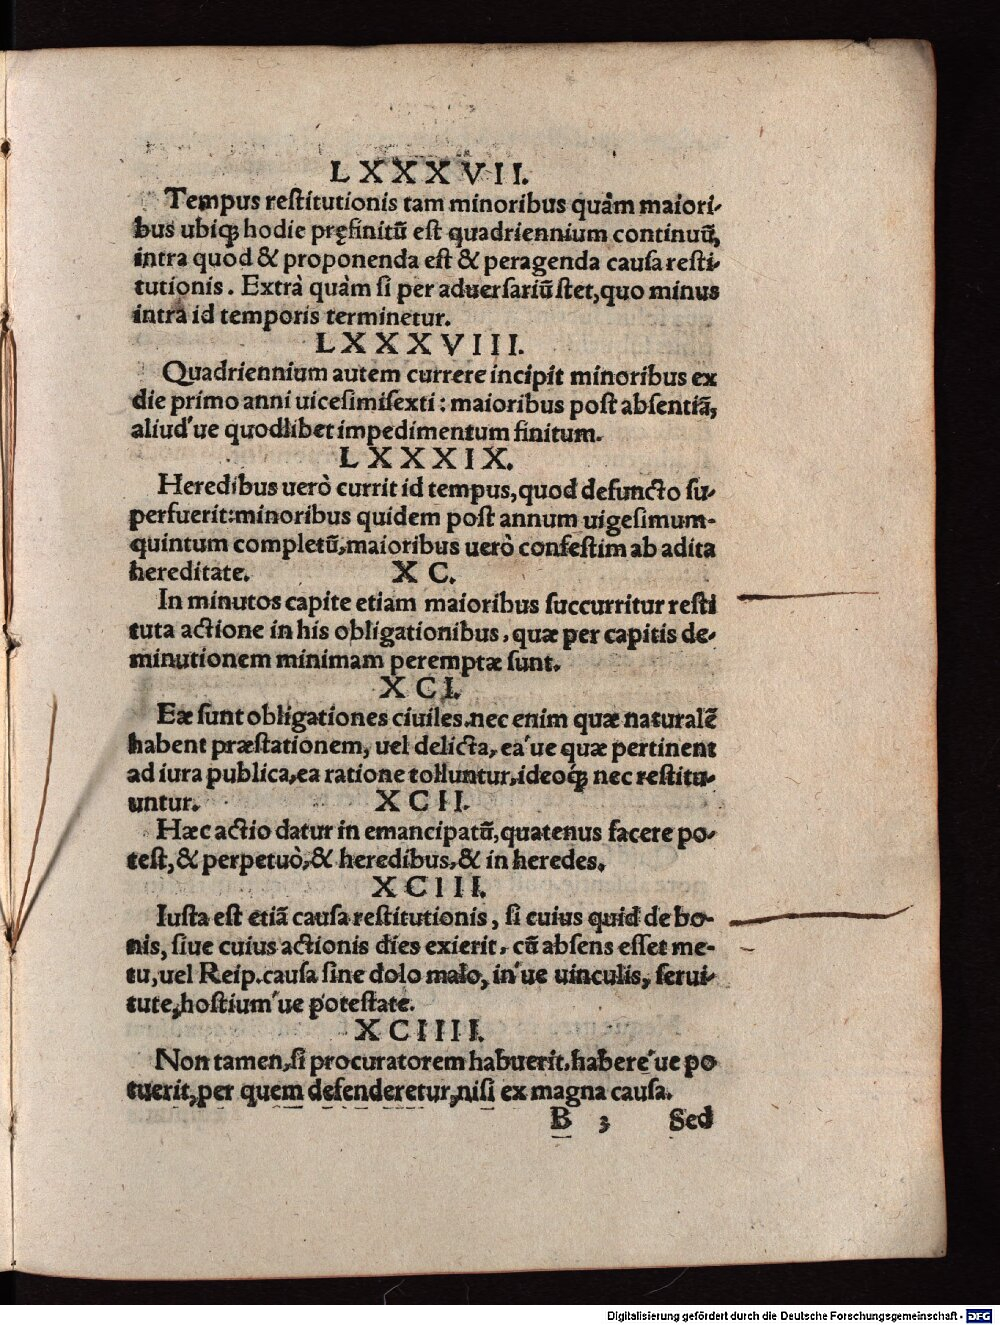 LXXXVII.
Tempus reſtitutionis tam minoribus quàm maiori-
bus ubiq; hodie pręfinitū eſt quadriennium continuū,
intra quod & proponenda eſt & peragenda cauſa reſti-
tutionis. Extrà quàm ſi per aduerſariū ſtet, quo minus
intra id temporis terminetur.
LXXXVIII.
Quadriennium autem currere incipit minoribus ex
die primo anni uiceſimiſexti: maioribus poſt abſentiā,
aliud'ue quodlibet impedimentum finitum.
LXXXIX.
Heredibus uerò currit id tempus, quod defuncto ſu-
perfuerit: minoribus quidem poſt annum uigeſimum-
quintum completū, maioribus uerò confeſtim ab adita
hereditate. XC.
In minutos capite etiam maioribus ſuccurritur reſti
tuta actione in his obligationibus, quæ per capitis de-
minutionem minimam peremptæ ſunt.
XCI.
Eæ ſunt obligationes ciuiles. nec enim quæ naturalē
habent præſtationem, uel delicta, ea'ue quæ pertinent
ad iura publica, ea ratione tolluntur, ideoq́; nec reſtitu-
untur. XCII.
Hæc actio datur in emancipatū, quatenus facere po-
teſt, & perpetuò, & heredibus, & in heredes.
XCIII.
Iuſta eſt etiā cauſa reſtitutionis, ſi cuius quid de bo-
nis, ſiue cuius actionis dies exierit, cū abſens eſſet me-
tu, uel Reip. cauſa ſine dolo malo, in'ue uinculis, ſerui-
tute, hoſtium'ue poteſtate.
XCIIII.
Non tamen, ſi procuratorem habuerit, habere'ue po
tuerit, per quem defenderetur, niſi ex magna cauſa.
B 3 Sed
Digitalisierung gefördert durch die Deutsche Forschungsgemeinschaft - DFG